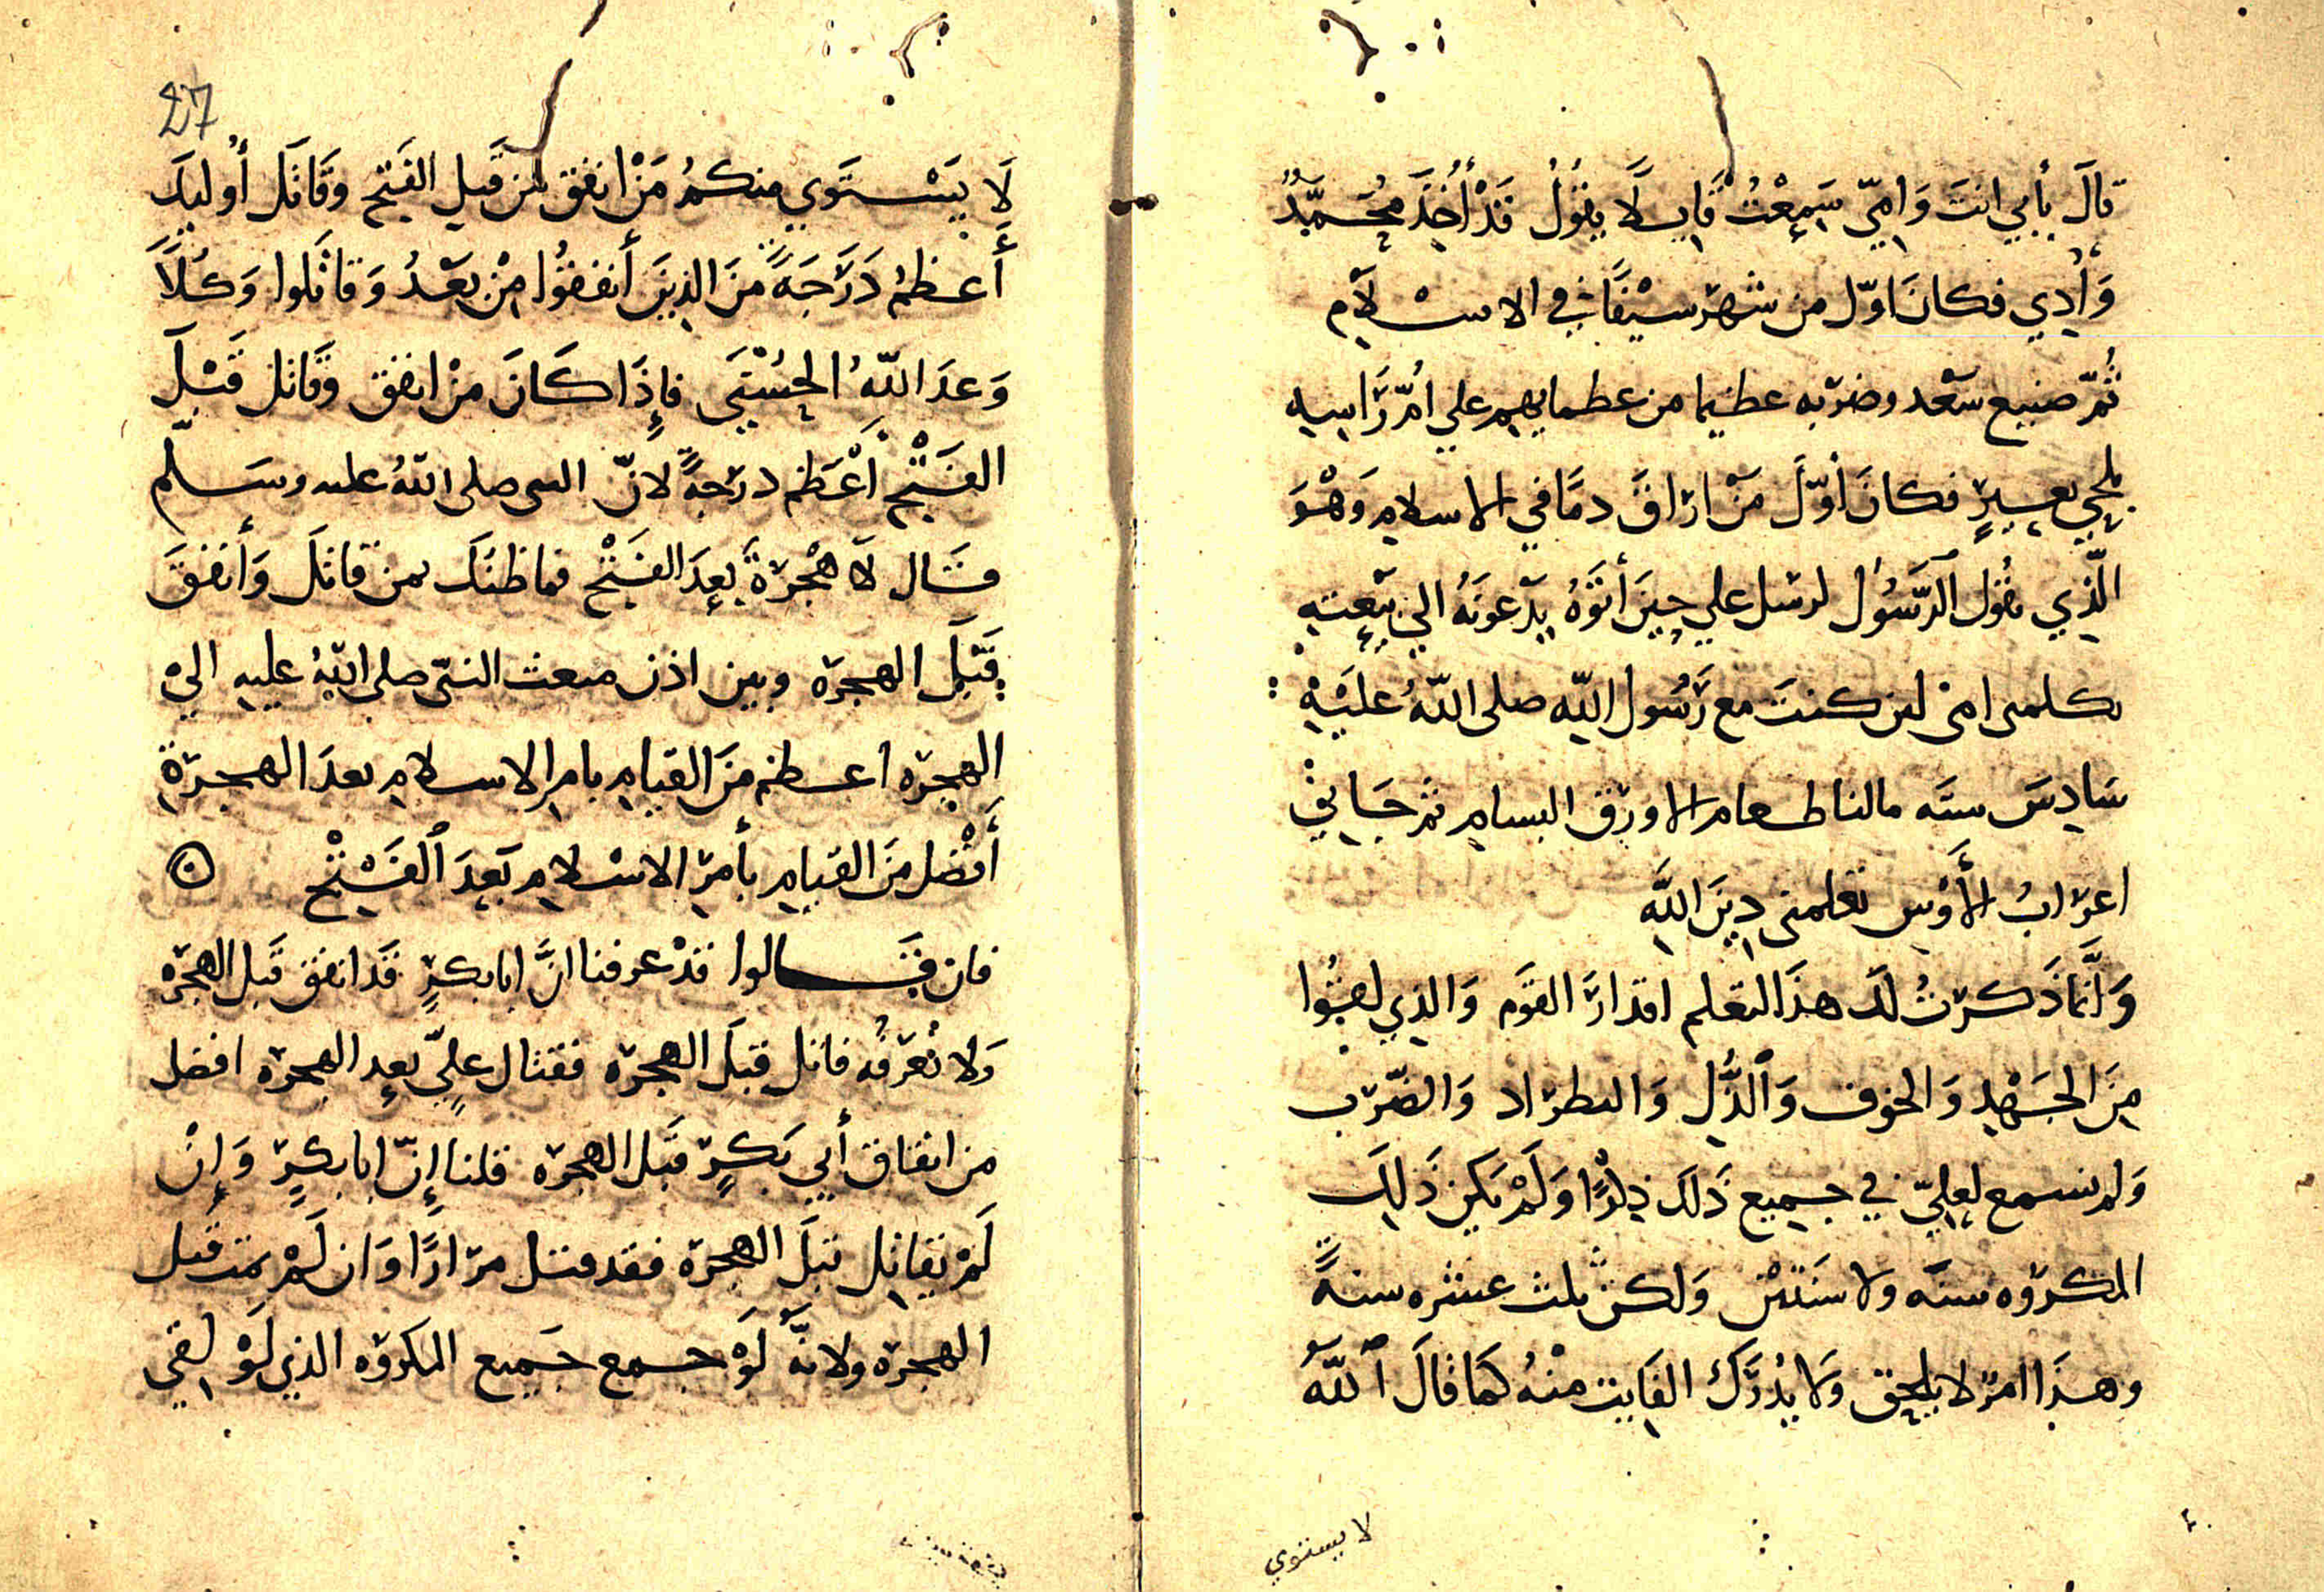 قالَ بأبي انتَ وَامِّي سَمِعْتُ قَايلًا يقُولُ قَدْ أُخِذَ مُحَمَّدٌ
وَأُدِي فكانَ اوّل من شهر سيْفًا في الاسْلام
ثُمّ صنيع سَعْد وضربه عظيما من عظمايهم علي اُمّ رَاسِه
بلحي بعيرٍ فكانَ أوّلَ مَنْ اراقَ دمًا في الاسلام وَهْوَ
الَّذي يقُول الرَّسُول لرسل علي حِينَ أتَوْهُ يدْعونَهُ الي بَيْعته
يكلمني امن كنتَ مع رَسُول اللّه صلى اللّهُ علَيْهِ
سَادِسَ ستَه مالنا طعام الا ورق البسام ثم جَاني
اعرابُ الأَوْس تعلمني دِينَ اللَّه
وَانَّما ذَكرتُ لكَ هذَا لتعلم اقدارَ القوَم وَالذي لقوُا
مِنَ الجَهْدِ وَالخوف وَالذُّلِ وَالطراد وَالضّرب
وَلم نسمع لعليّ في جميع ذَلكَ ذِكْرًا وَلَمْ يَكن ذَلِكَ
المكروه سنَه ولا سَنَتَيْن وَلكن ثلث عشره سنهً
وهذَا امرٌ لا يلحق وَلا يُدْرَكُ الفَايت منْهُ كمَا قَالَ اللّهُ
لا يستوي
27
لَا يَسْتَوي منكمُ مَنْ انفق من قَبلِ الفَتحِ وَقَاتَل أُوليكَ
أَعظمُ دَرَجَهً منَ الذِينَ أنفقوُا مِنْ بَعْدُ وَقاتَلوا وَكُلًّا
وَعدَ اللّهُ الحُسْنَي فإِذَا كَانَ منْ انفق وَقَاتل قَبْلَ
الفَتْحِ أَعْظَم درَجهً لانّ النبي صلى اللّهُ عليه وسَلّم
قَال لَا هْجرةَ بعدَ الفَتْحِ فماظنكَ بمن قاتَل وَأنفقَ
قَبْلَ الهجرَه وبين اذن مبعث النبّي صلى اللّهُ عليه اليْ
الهجرَه اعظم منَ القيام بامر الاسلام بعدَ الهجرَةِ
أَفْضل منَ القيام بأمر الاسْلام بَعدَ الفَتْحِ
فان قَالوا قدْ عرفنا انَّ ابابكرٍ قَد انفق قَبل الهجرَه
وَلا نُعرفُه قاتل قبلَ الهجرَه فقتال عليّ بعد الهجرَه افضل
من انفاق أبي بَكرٍ قَبل الهجرَه قلنا إِنّ ابابكرٍ وَإِنْ
لَمْ يقاتِل قبلَ الهجرَه فقد قتل مرارًا وَان لَمْ يمت قَبل
الهجرَه ولانّه لَوْ جمع جَميع المكروه الذي لَوْ لقي